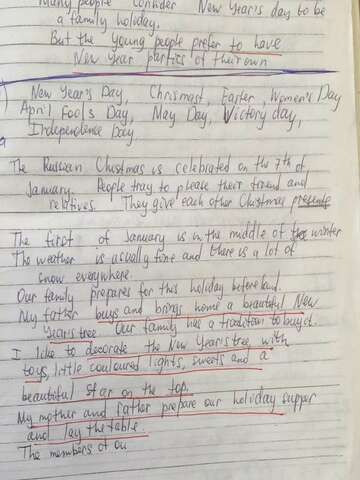 Many people consider New Year's day to be
a family holiday.
But the young people prefer to have
New Year parties of their own
New Year's Day, Chrismast, Easter, Women's Day
April Fool's Day, May Day, Victory day,
Independence Day
The Russian Chistmas is celebrated on the 7th of
January. People tray to please their friend and
relatives. They give each other Christmas presents
The first of January is in the middle of the winter
The weather is usually fine and there is a lot of
snow everywhere.
Our family prepares for this holiday beforeland.
My father buys and brings home a beautiful New
Year's tree. Our family has a tradition to buyst.
I like to decorate the New Year's tree with
toys, little couloured lights, sweets and a
beautiful star on the top.
My mother and father prepare our holiday supper
and lay the table.
The members of ou